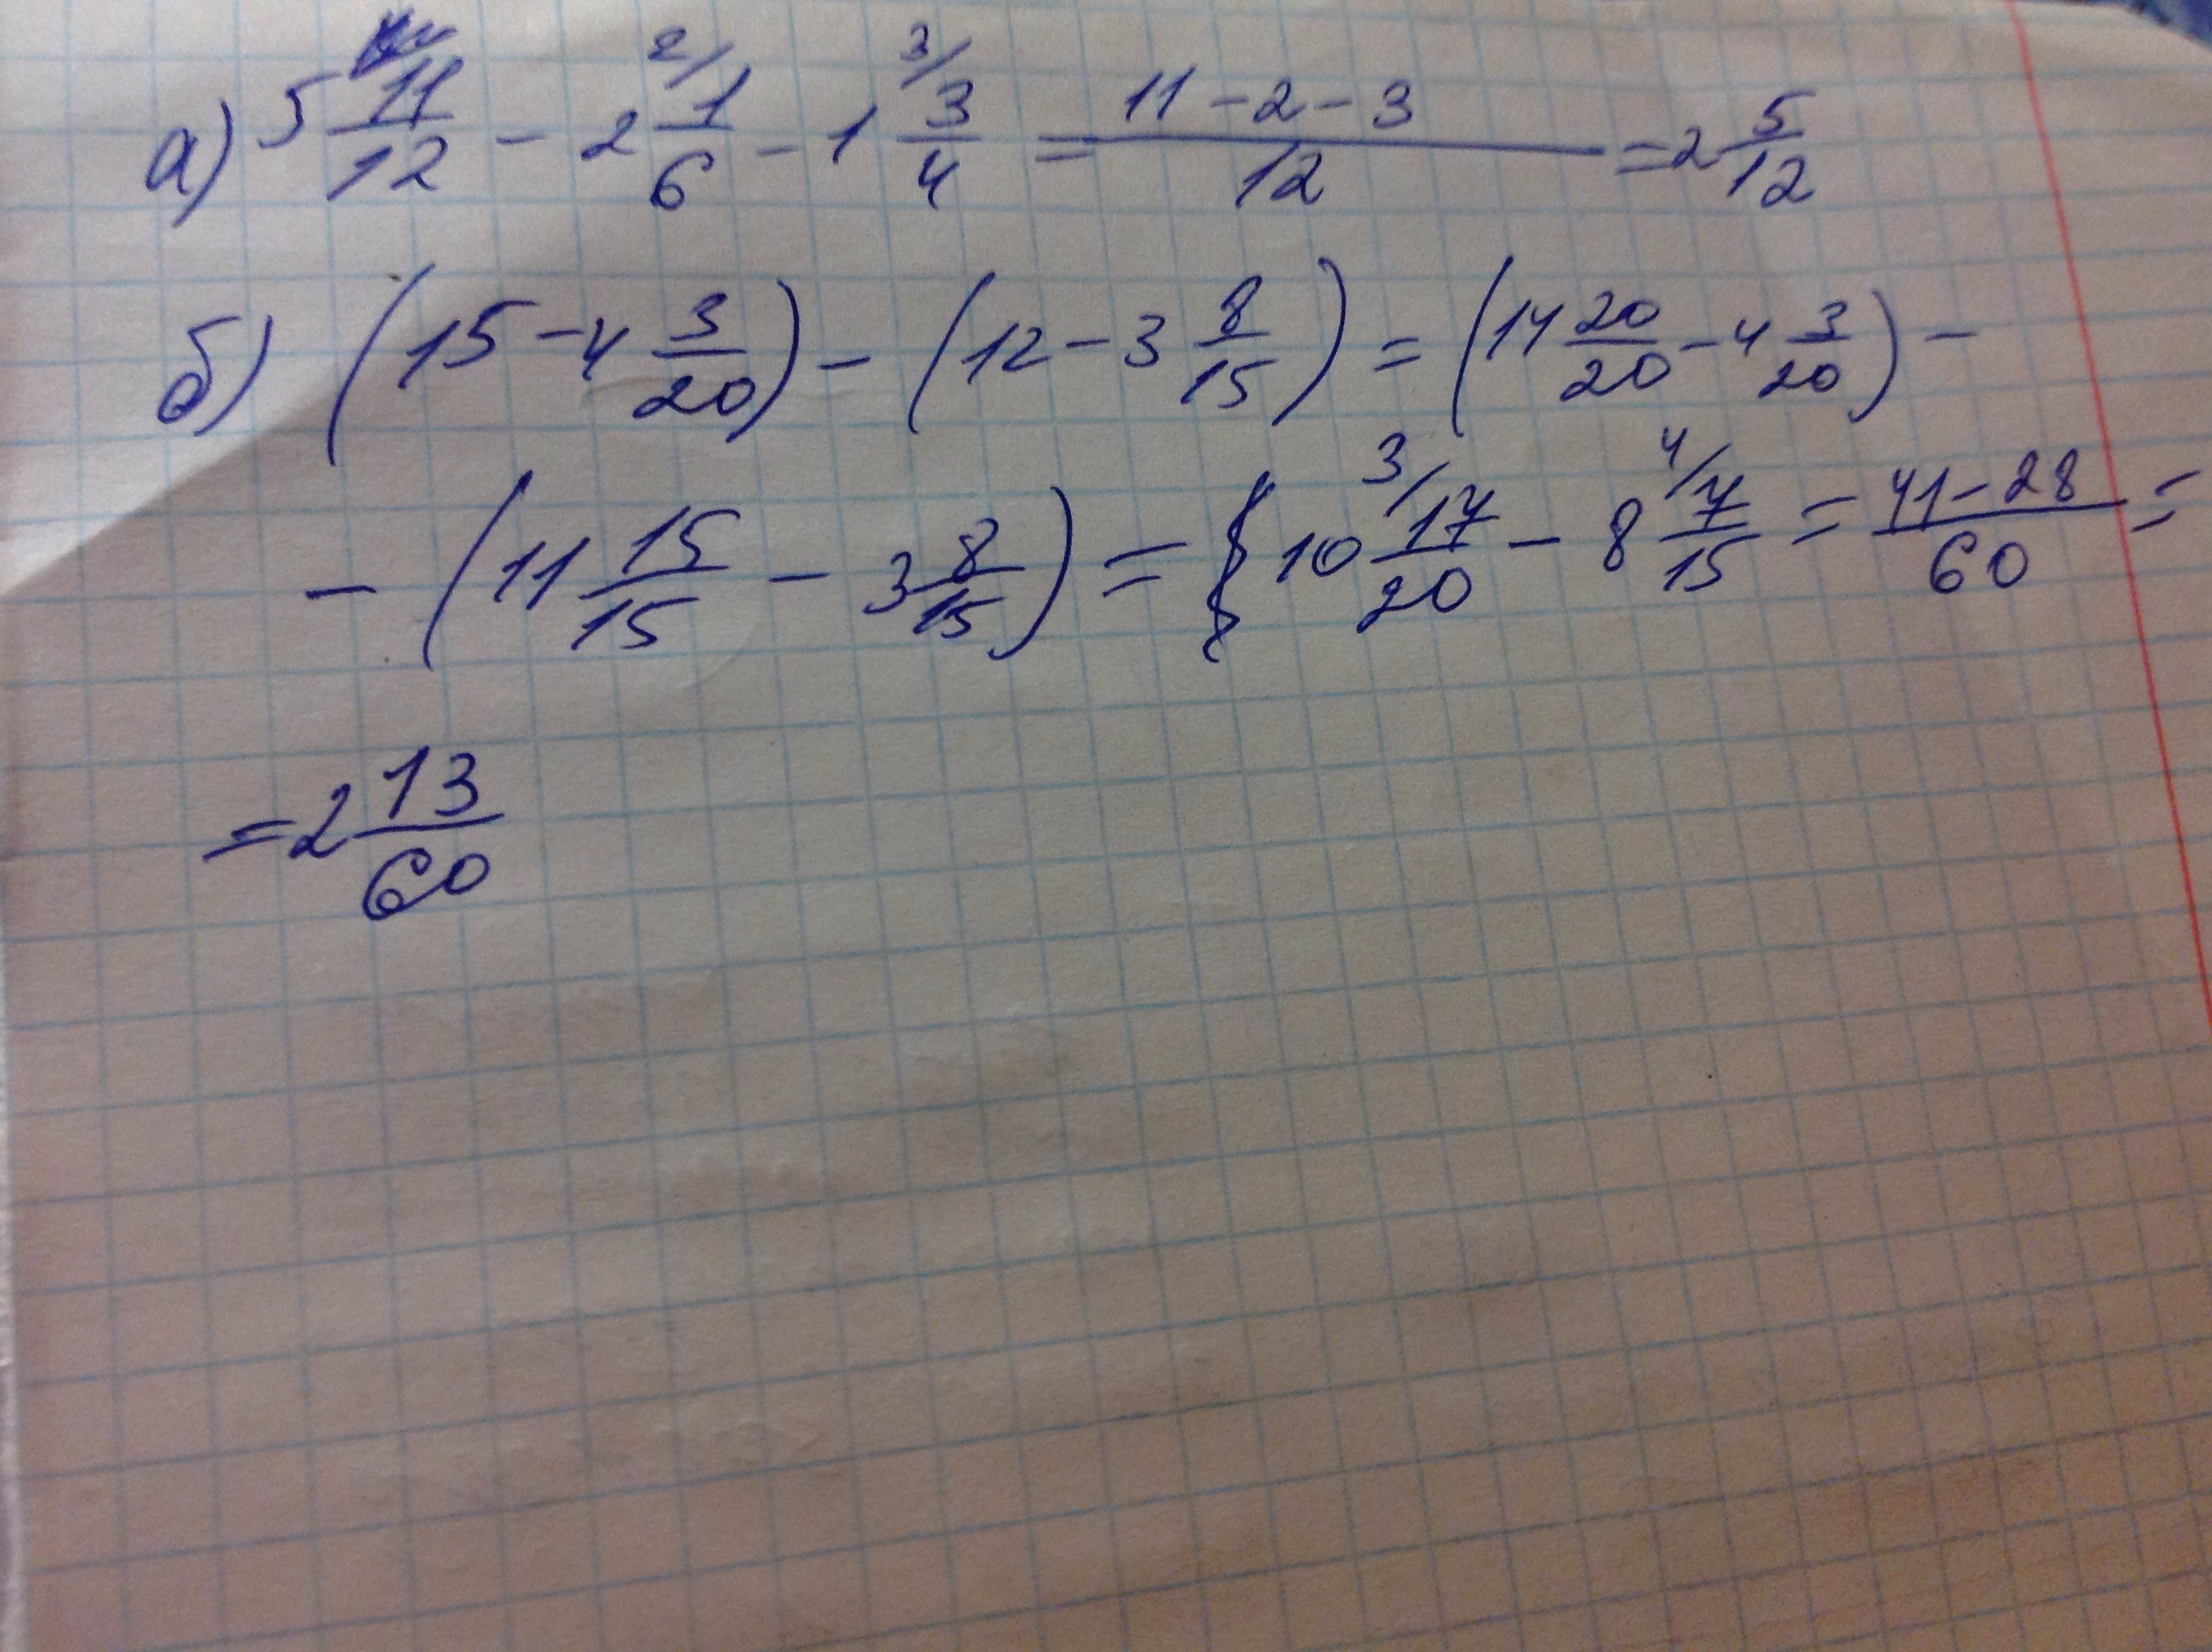 а) 5 11/12 - 2 2/ 1/6 - 1 3/ 3/4 = 11-2-3/12 = 2 5/12
б) (15-4 3/20) - (12-3 8/15) = (14 20/20 - 4 3/20) -
- (11 15/15 - 3 8/15) = 10 3/ 17/20 - 8 4/ 7/15 = 41-28/60 =
= 2 13/60